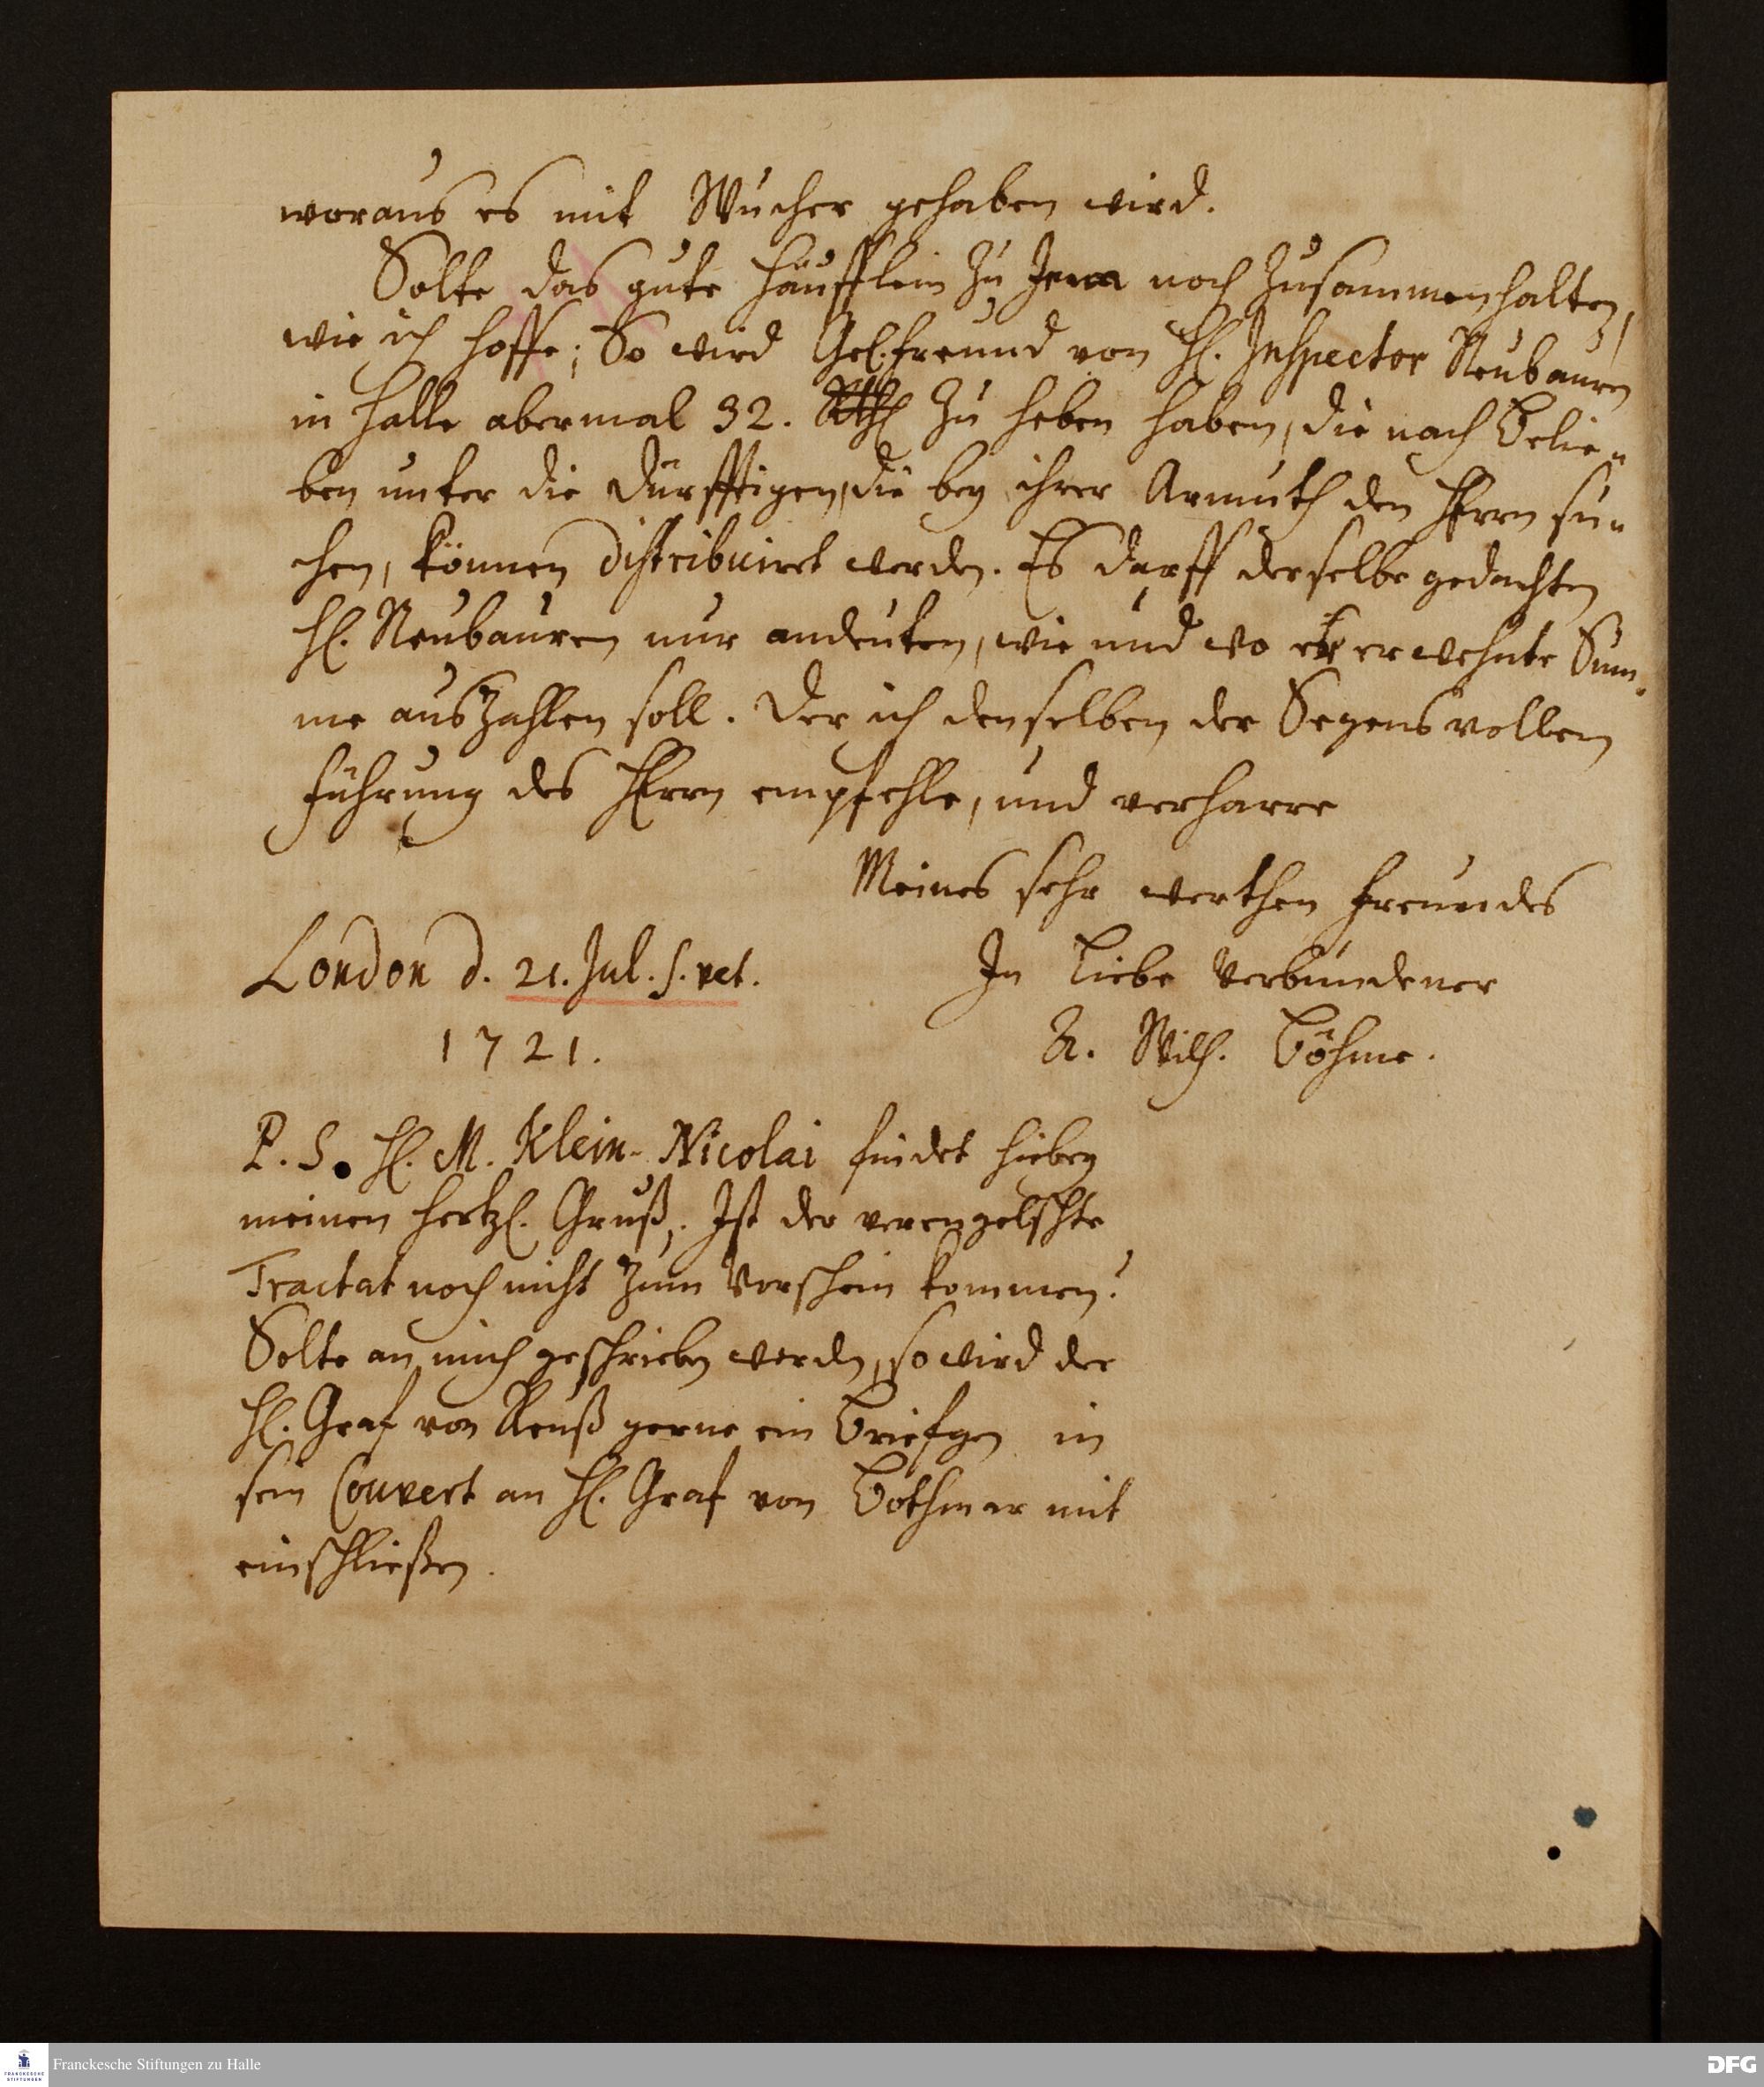 woraus es mit Wucher gehaben wird.
Solte das gute Häufflein zu Jena noch zusammenhalten,
wie ich hoffe; So wird Gel. Freund von H. Inspector Neubauren
in Halle abermal 32. Rthl zu heben haben, die nach Belie-
ben unter die Dürfftigen, die bey ihrer Armuth den HErrn su-
chen, können distribuiret werden. Es darff derselbe gedachten
H. Neubauren nur andeuten, wie und wo er erwehnte Sum-
me auszahlen soll. Der ich denselben der Segensvollen
Führung des HErrn empfehle, und verharre
Meines sehr werthen Freundes
London d. 21. Jul. s. vet.
1721.
In Liebe Verbundener
A. Wilh. Böhme.
P. S. H. M. Klein-Nicolai findet hiebey
meinen hertzl. Gruß. Ist der verengelschte
Tractat noch nicht zum Vorschein kommen?
Solte an mich geschrieben werden, so wird der
H. Graf von Reuß gerne ein Briefgen in
sein Couvert an H. Graf von Bothmar mit
einschließen.
Franckesche Stiftungen zu Halle
FRANCKESCHE
STIFTUNGEN
DFG